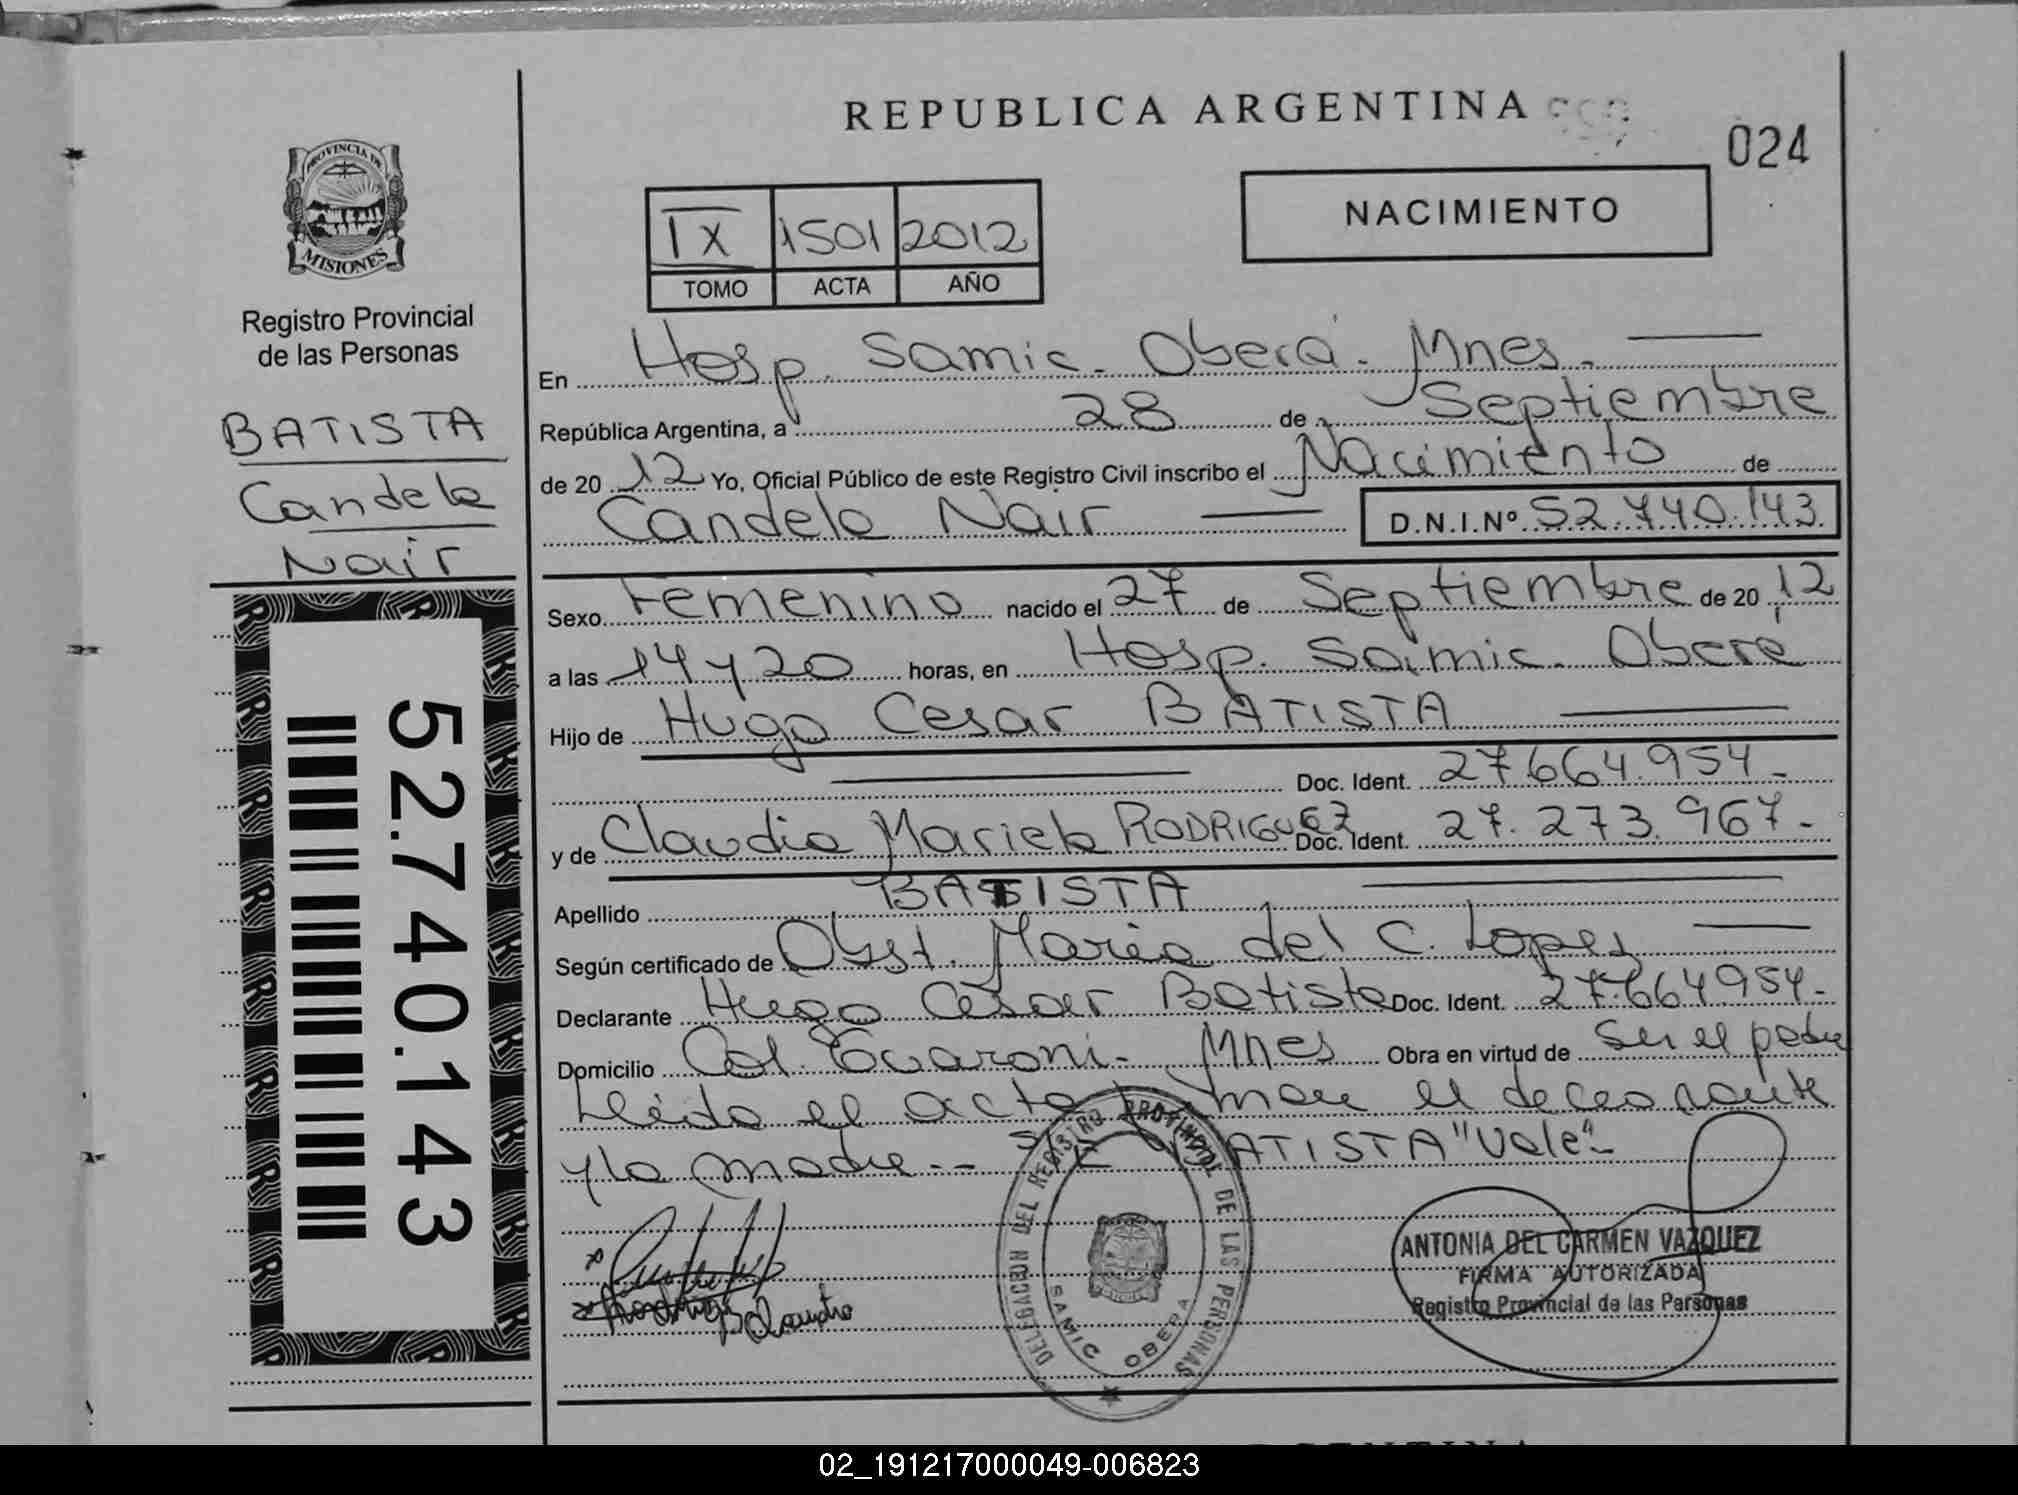 REPUBLICA ARGENTINA
024
PROVINCIA DE
MISIONES
Registro Provincial
de las Personas
BATISTA
Candela
Nair
52.740.143
IX 1501 2012
TOMO ACTA AÑO
NACIMIENTO
En Hosp. Samic - Oberá - Mnes.
República Argentina, a 28 de Septiembre
de 20 12 Yo, Oficial Público de este Registro Civil inscribo el Nacimiento de
Candela Nair D.N.I.Nº 52.740.143
Sexo Femenino nacido el 27 de Septiembre de 20 12
a las 14 y 20 horas, en Hosp. Samic. Oberá
Hijo de Hugo Cesar BATISTA
Doc. Ident. 27.664.954-
y de Claudia Mariela RODRIGUEZ Doc. Ident. 27.273.967-
Apellido BATISTA
Según certificado de Obst. María del C. Lopez
Declarante Hugo Cesar Batista Doc. Ident. 27.664954-
Domicilio Col. Guaraní - Mnes Obra en virtud de ser el padre
Leída el acta
y la madre.- BATISTA "Vale"-
DELEGACION DEL REGISTRO PROVINCIAL DE LAS PERSONAS
SAMIC OBERA
ANTONIA DEL CARMEN VAZQUEZ
FIRMA AUTORIZADA
Registro Provincial de las Personas
02_191217000049-006823